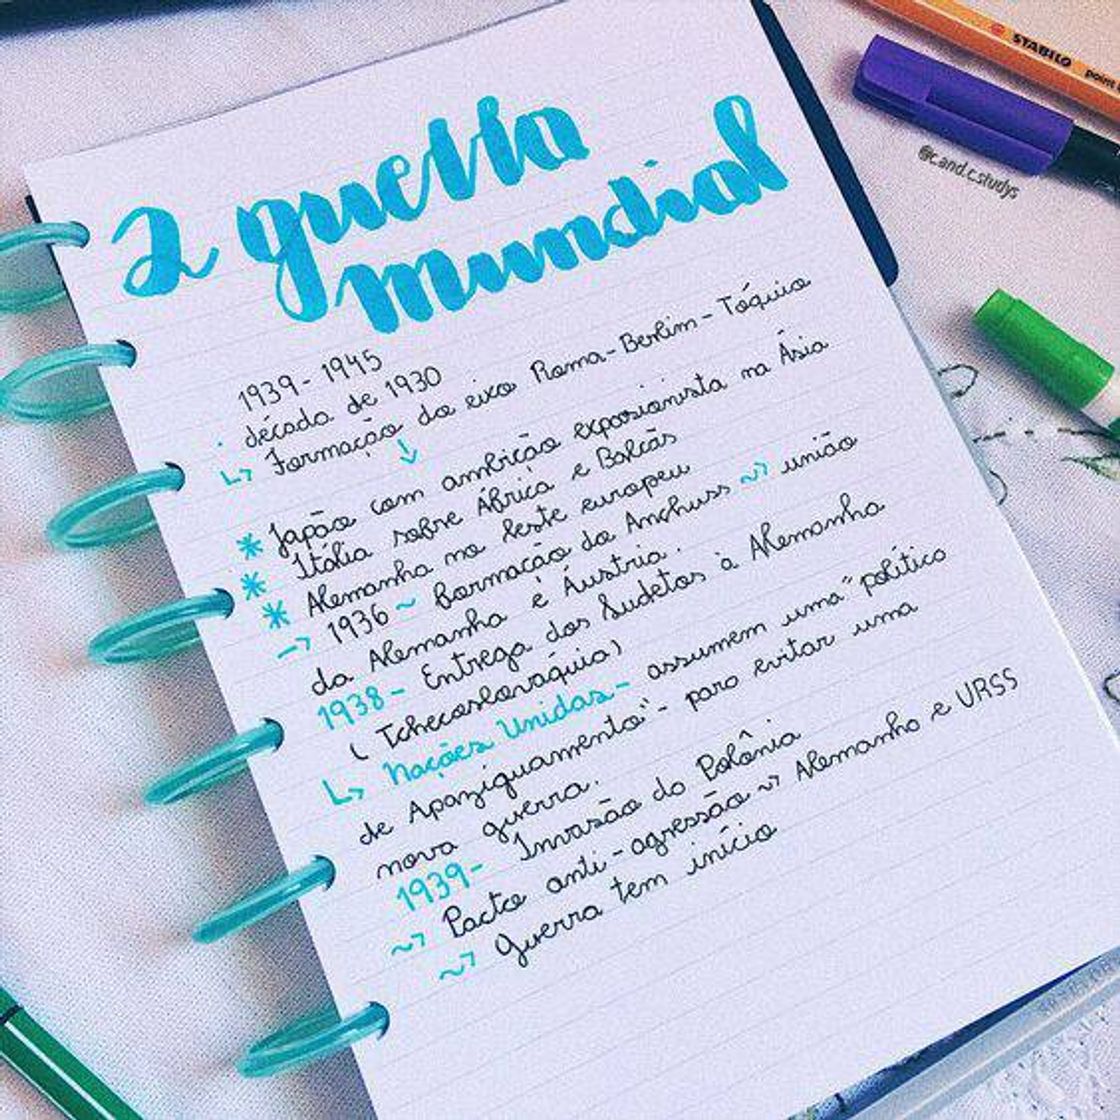 2 guerra
mundial
1939-1945
· década de 1930
↳ Formação do eixo Roma-Berlim-Tóquio
↓
* Japão com ambição expansionista na Ásia
* Itália sobre África e Balcãs
* Alemanha no leste europeu
→ 1936 ~ formação do Anchuss ~> união
da Alemanha e Áustria.
1938- Entrega dos Sudetos à Alemanha
( Tchecoslováquia)
↳ Nações Unidas- assumem uma "política
de Apaziguamento"- para evitar uma
nova guerra.
1939- Invasão da Polônia
~> Pacto anti-agressão ~> Alemanha e URSS
~> Guerra tem início
STABILO point
@c.and.c.studys